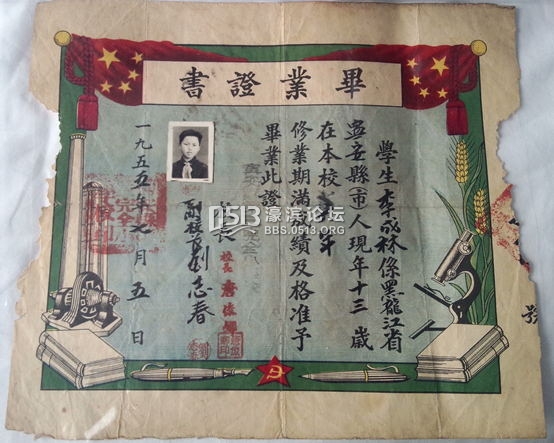 畢業證書
學生李成林係黑龍江省
寧安縣市人現年十三歲
在本校
修業期滿成績及格准予
畢業此證
校長
副校長劉志春
一九五五年七月五日
號
0513濠滨论坛
BBS.0513.NET